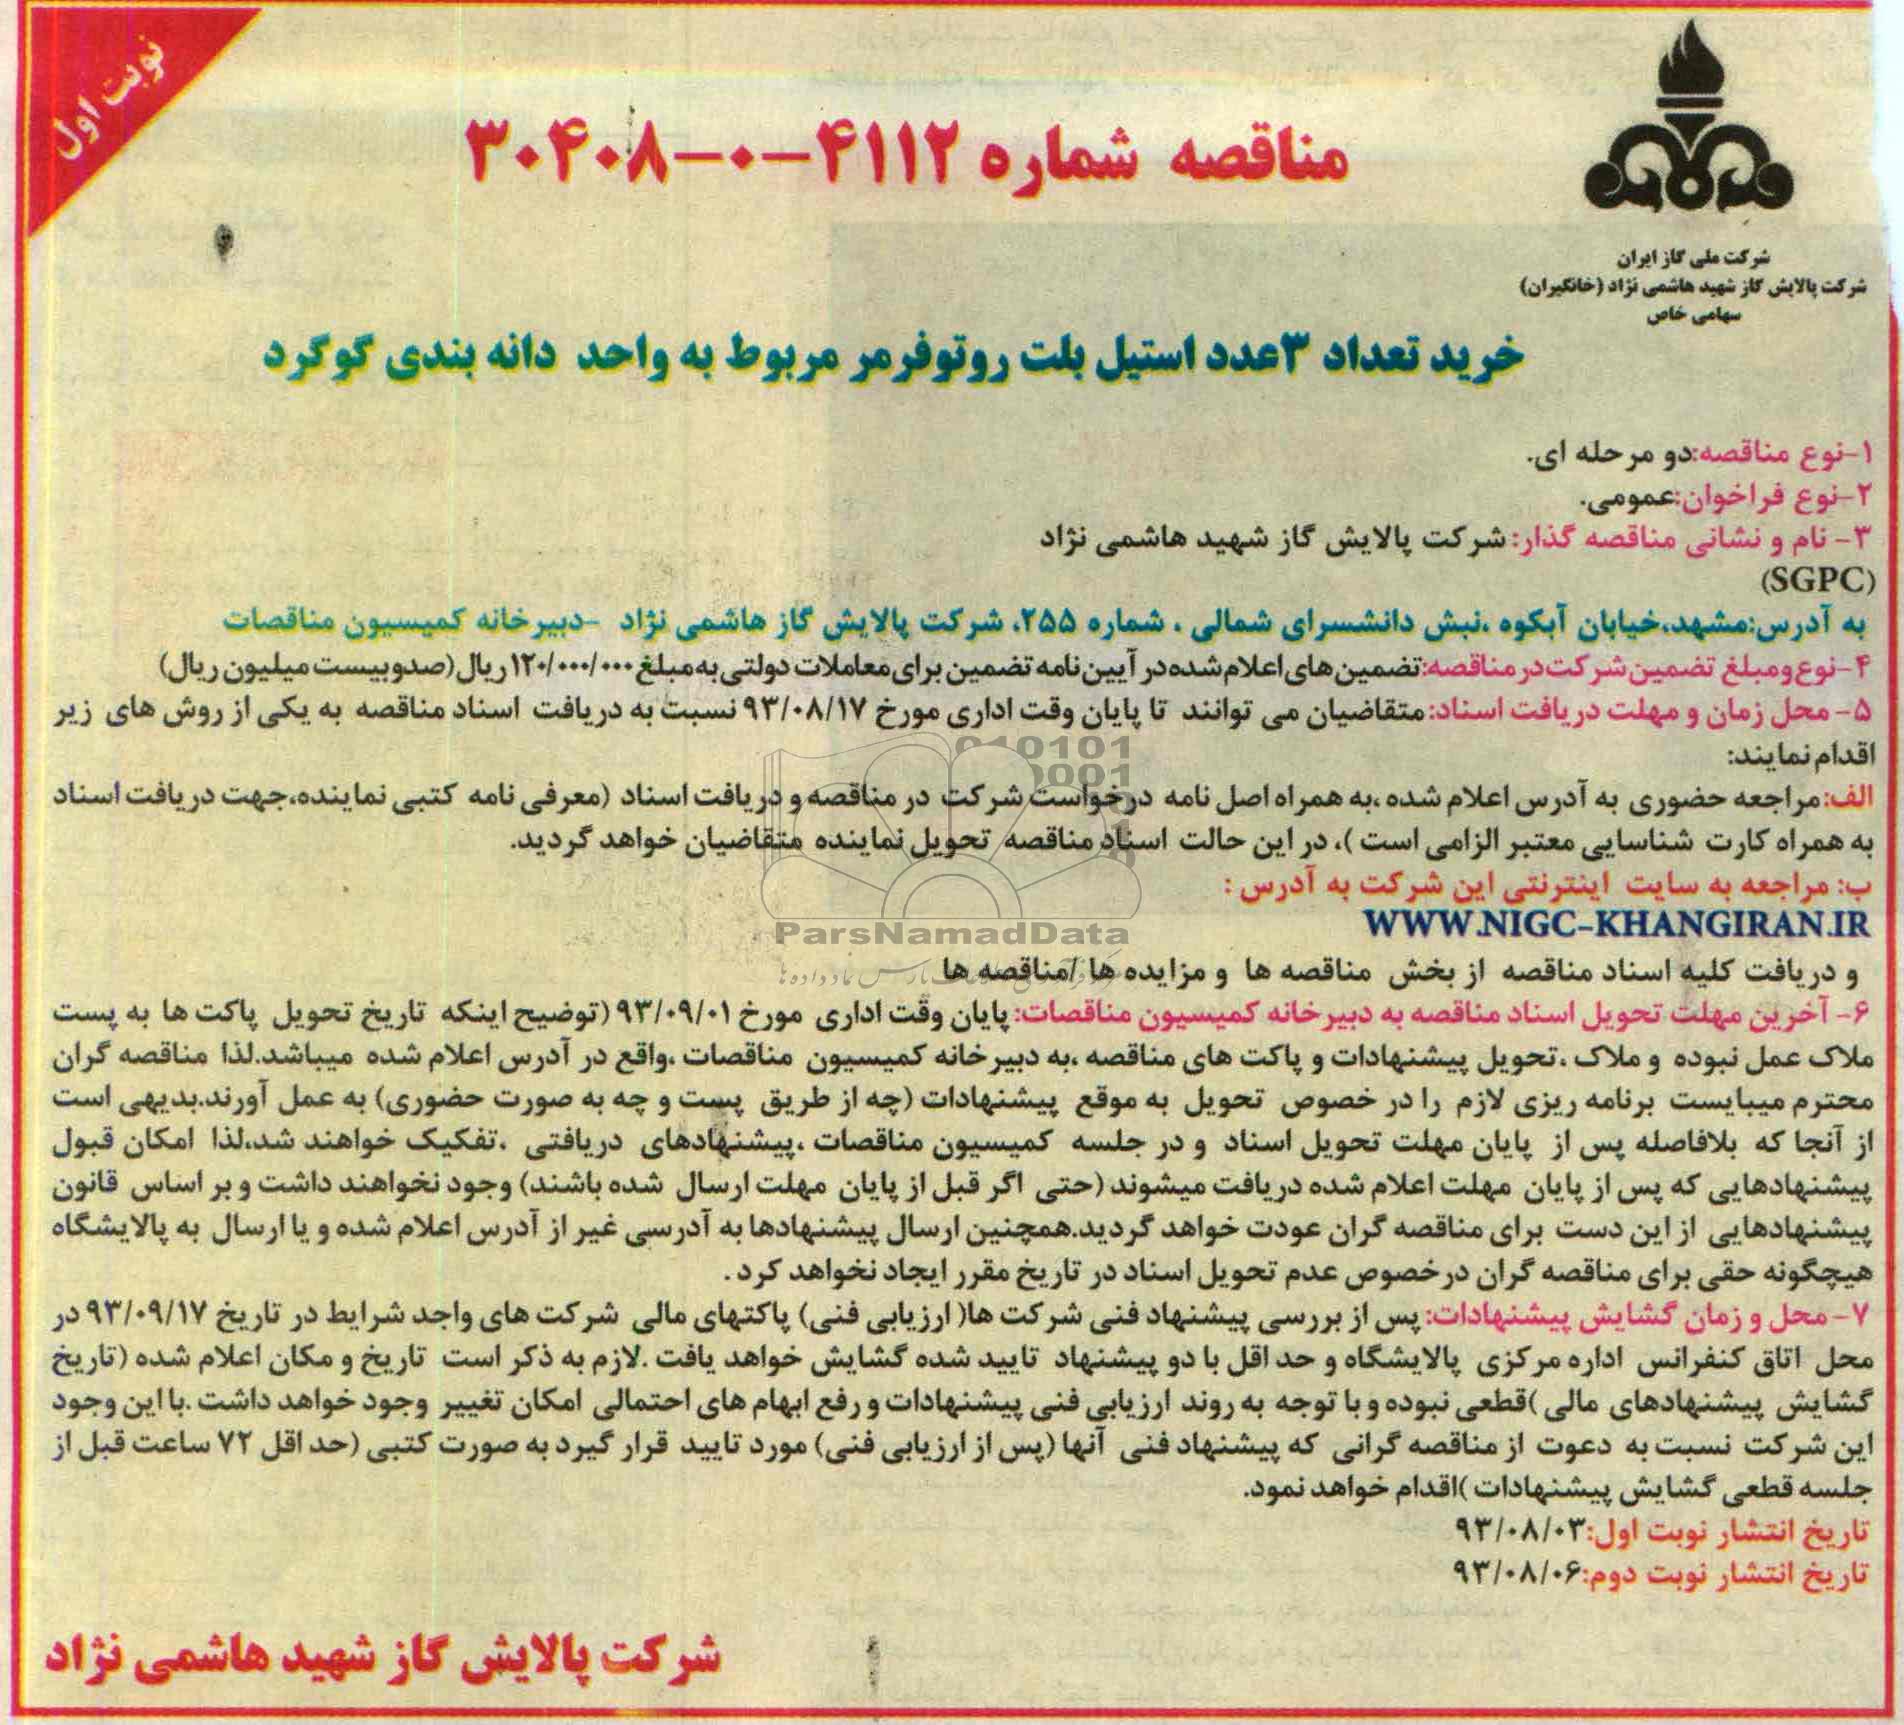 نوبت اول
مناقصه شماره ۴۱۱۲-۰-۳۰۴۰۸
شرکت ملی گاز ایران
شرکت پالایش گاز شهید هاشمی نژاد (خانگیران)
سهامی خاص
خرید تعداد ۳عدد استیل بلت روتوفرمر مربوط به واحد دانه بندی گوگرد
۱-نوع مناقصه:دو مرحله ای.
۲-نوع فراخوان:عمومی.
۳- نام و نشانی مناقصه گذار: شرکت پالایش گاز شهید هاشمی نژاد
(SGPC)
به آدرس:مشهد،خیابان آبکوه ،نبش دانشسرای شمالی ، شماره ۲۵۵، شرکت پالایش گاز هاشمی نژاد -دبیرخانه کمیسیون مناقصات
۴-نوع ومبلغ تضمین شرکت در مناقصه:تضمین های اعلام شده در آیین نامه تضمین برای معاملات دولتی به مبلغ ۱۲۰/۰۰۰/۰۰۰ ریال(صدوبیست میلیون ریال)
۵- محل زمان و مهلت دریافت اسناد: متقاضیان می توانند تا پایان وقت اداری مورخ ۹۳/۰۸/۱۷ نسبت به دریافت اسناد مناقصه به یکی از روش های زیر
اقدام نمایند:
الف:مراجعه حضوری به آدرس اعلام شده ،به همراه اصل نامه درخواست شرکت در مناقصه و دریافت اسناد (معرفی نامه کتبی نماینده،جهت دریافت اسناد
به همراه کارت شناسایی معتبر الزامی است )، در این حالت اسناد مناقصه تحویل نماینده متقاضیان خواهد گردید.
ب: مراجعه به سایت اینترنتی این شرکت به آدرس :
WWW.NIGC-KHANGIRAN.IR
و دریافت کلیه اسناد مناقصه از بخش مناقصه ها و مزایده ها /مناقصه ها
۶- آخرین مهلت تحویل اسناد مناقصه به دبیرخانه کمیسیون مناقصات: پایان وقت اداری مورخ ۹۳/۰۹/۰۱ (توضیح اینکه تاریخ تحویل پاکت ها به پست
ملاک عمل نبوده و ملاک ،تحویل پیشنهادات و پاکت های مناقصه ،به دبیرخانه کمیسیون مناقصات ،واقع در آدرس اعلام شده میباشد.لذا مناقصه گران
محترم میبایست برنامه ریزی لازم را در خصوص تحویل به موقع پیشنهادات (چه از طریق پست و چه به صورت حضوری) به عمل آورند.بدیهی است
از آنجا که بلافاصله پس از پایان مهلت تحویل اسناد و در جلسه کمیسیون مناقصات ،پیشنهادهای دریافتی ،تفکیک خواهند شد،لذا امکان قبول
پیشنهادهایی که پس از پایان مهلت اعلام شده دریافت میشوند (حتی اگر قبل از پایان مهلت ارسال شده باشند) وجود نخواهند داشت و بر اساس قانون
پیشنهادهایی از این دست برای مناقصه گران عودت خواهد گردید.همچنین ارسال پیشنهادها به آدرسی غیر از آدرس اعلام شده و یا ارسال به پالایشگاه
هیچگونه حقی برای مناقصه گران درخصوص عدم تحویل اسناد در تاریخ مقرر ایجاد نخواهد کرد .
۷- محل و زمان گشایش پیشنهادات: پس از بررسی پیشنهاد فنی شرکت ها( ارزیابی فنی) پاکتهای مالی شرکت های واجد شرایط در تاریخ ۹۳/۰۹/۱۷ در
محل اتاق کنفرانس اداره مرکزی پالایشگاه و حداقل با دو پیشنهاد تایید شده گشایش خواهد یافت .لازم به ذکر است تاریخ و مکان اعلام شده (تاریخ
گشایش پیشنهادهای مالی )قطعی نبوده و با توجه به روند ارزیابی فنی پیشنهادات و رفع ابهام های احتمالی امکان تغییر وجود خواهد داشت .با این وجود
این شرکت نسبت به دعوت از مناقصه گرانی که پیشنهاد فنی آنها (پس از ارزیابی فنی) مورد تایید قرار گیرد به صورت کتبی (حداقل ۷۲ ساعت قبل از
جلسه قطعی گشایش پیشنهادات )اقدام خواهد نمود.
تاریخ انتشار نوبت اول:۹۳/۰۸/۰۳
تاریخ انتشار نوبت دوم:۹۳/۰۸/۰۶
شرکت پالایش گاز شهید هاشمی نژاد
ParsNamadData